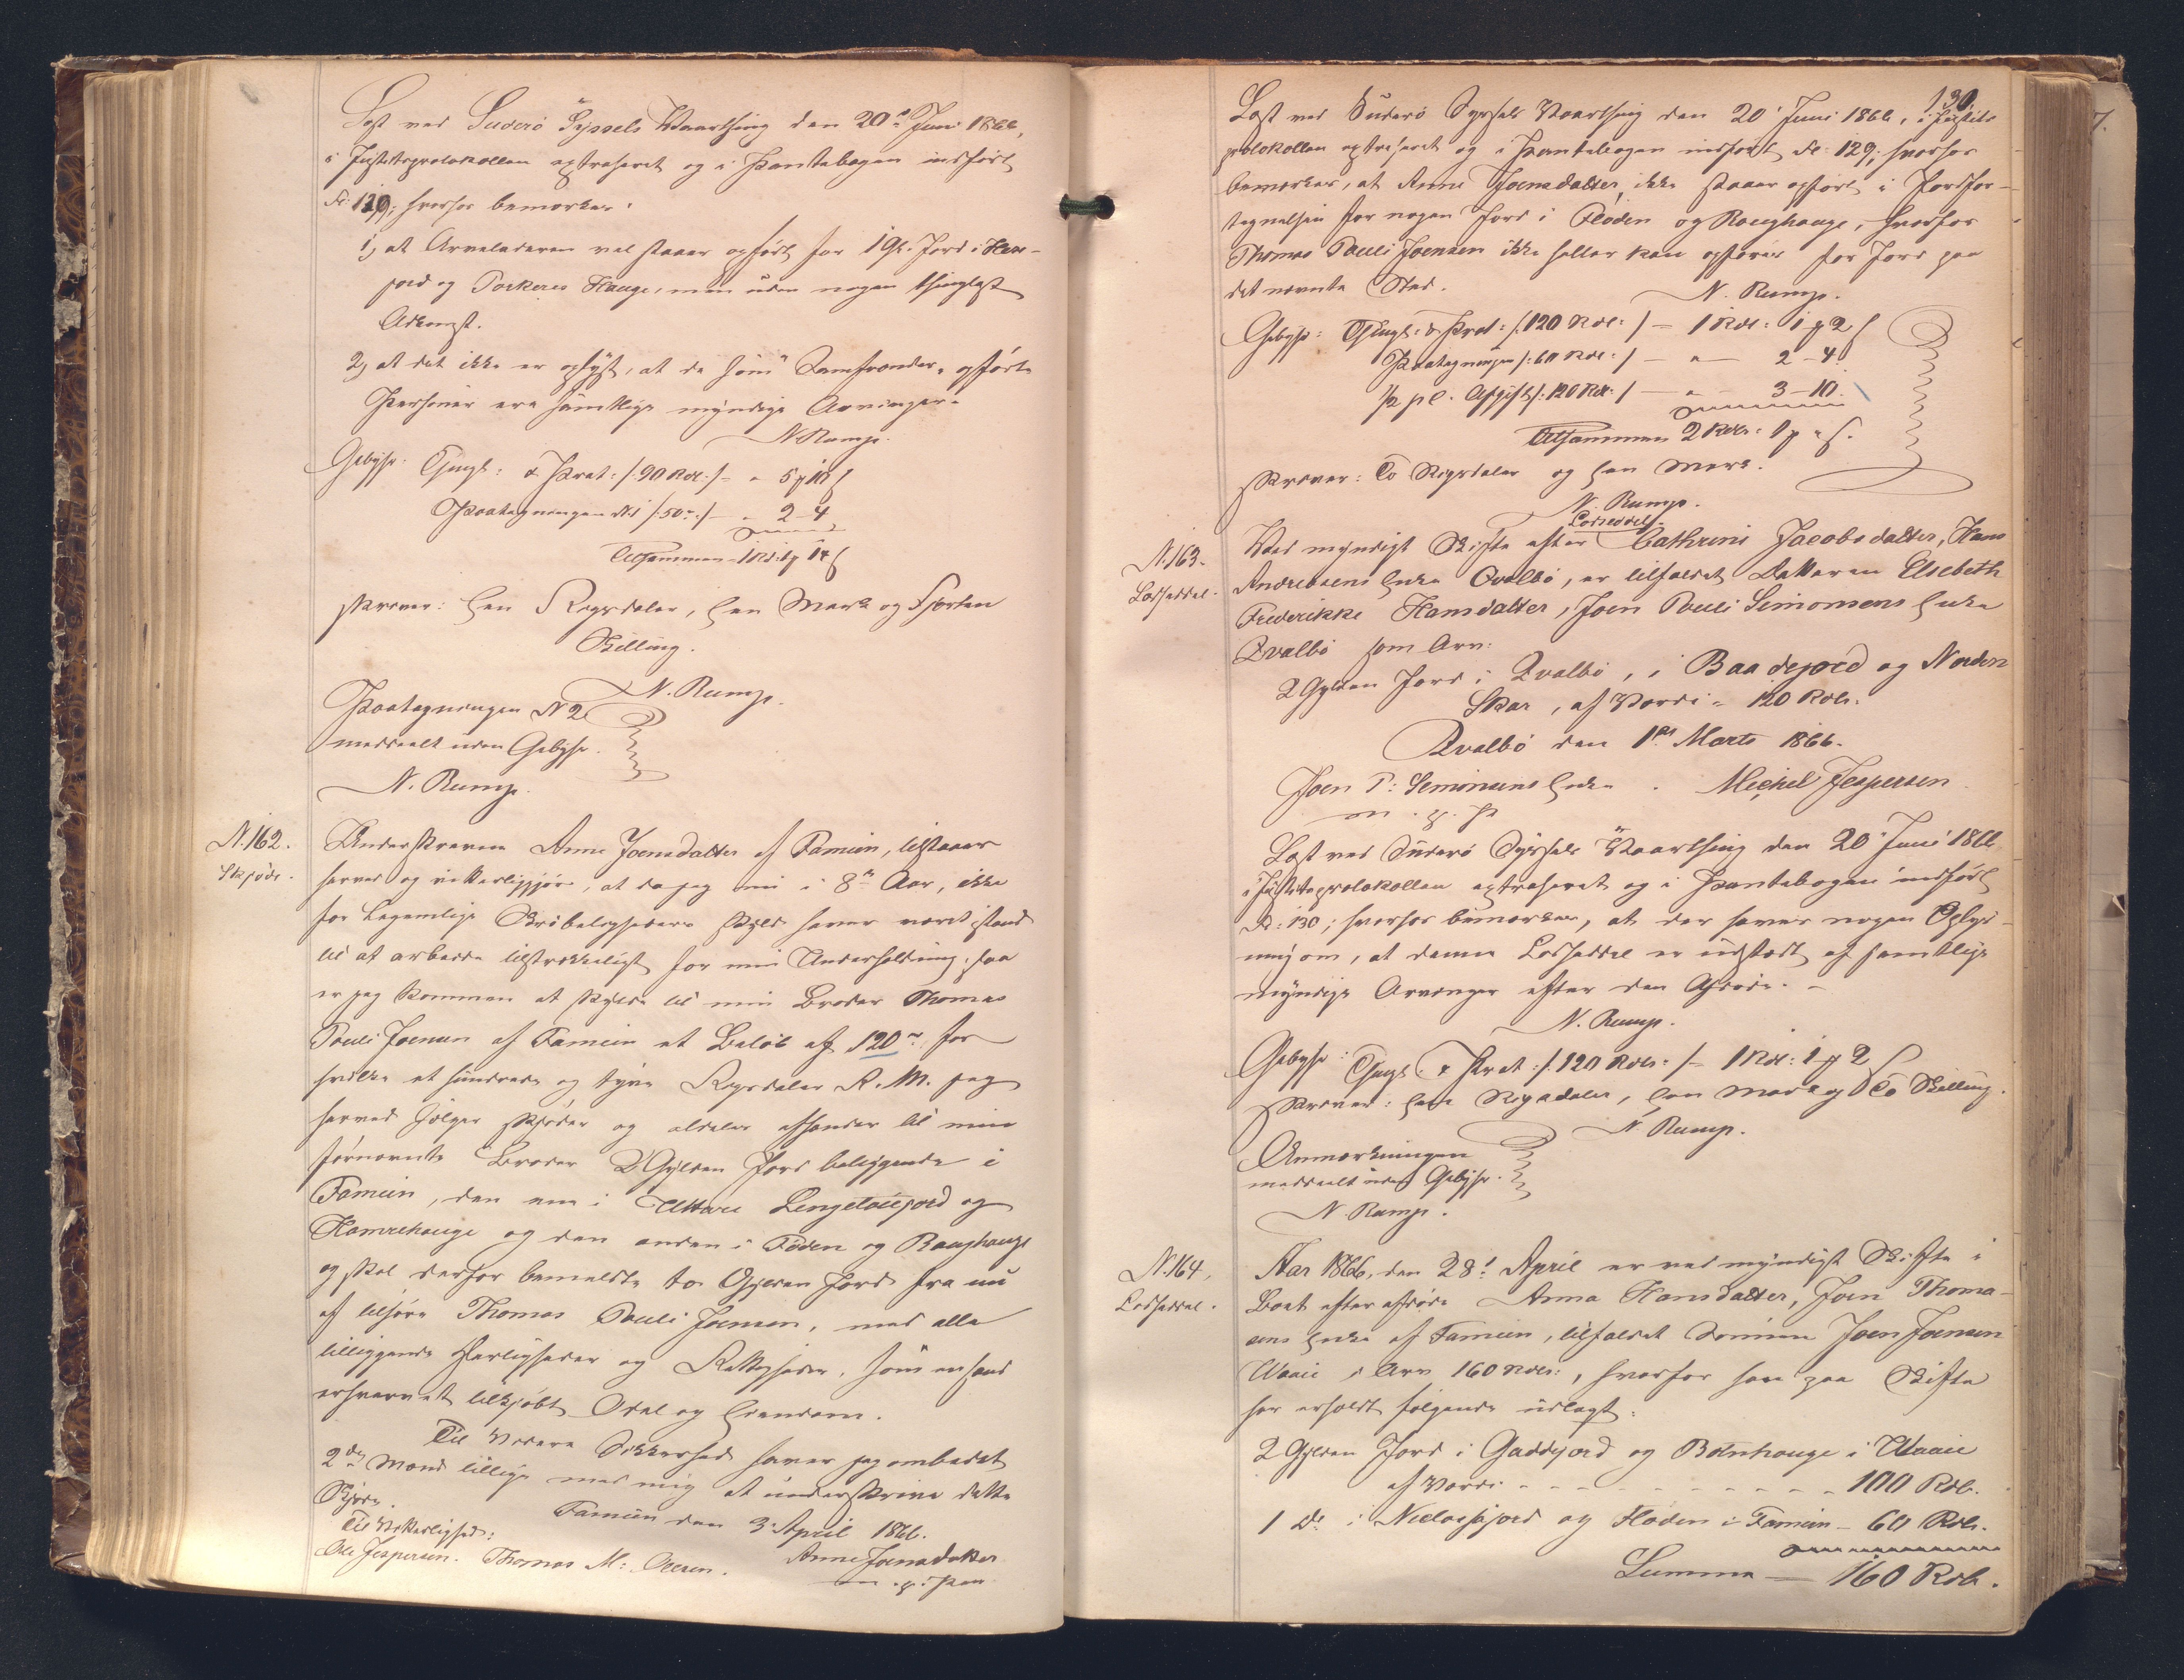 Læst ved Suderö Syssels Vaarthing den 20de Juni 1866,
i Justitsprotokollen extraheret og i Pantebogen indført
Fol: 129; hvorfor bemærkes:
1, at Arveladeren vel staaer opført for 1 Gl. Jord i
og Porkeres Hauge, men uden nogen thinglæst
Adkomst.
2, at det ikke er oplyst, at de som Samfrænder opførte
Personer ere samtlige myndige Arvinger.
N. Rump.
Gebyhr: Thingl: & Prot: /: 90 Rdl: /: - " 5 10
Paategningen /: 50 :/ - " 2 - 4
Tilsammen - 1 Rd: 1 14
skriver: Een Rigsdaler, Een Mark og Fjorten
Skilling.
N. Rump.
Paategningen N 2
meddeelt uden Gebyhr.
N. Rump.
N. 162.
Skjøde.
Underskrevne Anne Joensdatter af Famien, tilstaaer
herved og vitterliggjør, at da jeg nu i 8 Aar, ikke
for Legemlige Skrøbeligheders Skyld haver været istand
til at arbeide tilstrækkeligt for min Underholdning, saa
er jeg kommen at skylde til min Broder Thomas
Pouli Joensen af Famien et Beløb af 120 rd, for
hvilke et hundrede og tyve Rigsdaler R. M. jeg
herved sælger skjøder og aldeles afhænder til min
fornævnte Broder 2 Gylden Jord beliggende i
Famien, den ene i Uttari Lengetoiejord og
Hamrehauge og den anden i Fløden og Raughauge
og skal derfor bemeldte to Gylden Jord fra nu
af tilhøre Thomas Pouli Joensen, med alle
tilliggende Herligheder og Rettigheder, som en sand
erhvervet tilkjøbt Odel og Eiendom.
Til videre Sikkerhed haver jeg ombedet
2de Mænd tillige med mig at underskrive dette
Skjøde.
Famien den 3 April 1866.
Til Vitterlighed:
Ole Jespersen. Thomas M: Olesen. Anne Joensdatter
m. p. Pen
130.
Læst ved Suderö Syssels Vaarthing den 20 Juni 1866, i Justits
protokollen extraheret og i Pantebogen indført Fol: 129; hvorfor
bemærkes, at Anne Joensdatter, ikke staaer opført i Jordfor-
tegnelsen for nogen Jord i Fløden og Raughauge, hvorfor
Thomas Pouli Joensen ikke heller kan opføres for Jord paa
det nævnte Sted.
N. Rump.
Gebyhr: Thingl: & Prot: /: 120 Rdl: / - 1 Rdl: 1 2
Paategningen /: 60 Rdl: / - " - 2 - 4
1/2 pC. Afgift /: 120 Rdl: / - " - 3 - 10
Tilsammen 2 Rdl: 1 "
skriver: To Rigsdaler og Een Mark.
N. Rump.
Lodseddel.
N. 163.
Lodseddel.
Ved myndigt Skifte efter Cathrine Jacobsdatter, Hans
Andreasens Enke Qvalbö, er tilfaldet Datteren Elsebeth
Frederikke Hansdatter, Joen Pouli Simonsens Enke
Qvalbö som Arv:
2 Gylden Jord i Qvalbö, i Baadejord og Norden
Skar, af Værdi - 120 Rdlr.
Qvalbö den 1ste Marts 1866.
Joen P: Simonsens Enke. Michel Jespersen
m. p. P
Læst ved Suderö Syssels Vaarthing den 20 Juni 1866
i Justitsprotokollen extraheret og i Pantebogen indført
Fol: 130; hvorfor bemærkes, at der haves nogen Oplys-
ning om, at denne Lodseddel er udstædt af samtlige
myndige Arvinger efter den Afdøde. -
N. Rump.
Gebyhr: Thingl & Prot: /: 120 Rdl: / - 1 Rdl: 1 2
skriver: Een Rigsdaler, Een Mark og To Skilling.
N. Rump.
Anmærkningen
meddeelt uden Gebyhr.
N. Rump.
N. 164.
Lodseddel.
Aar 1866, den 28de April er ved myndigt Skifte i
Boet efter afdøde Anna Hansdatter, Joen Thoma-
sens Enke af Famien, tilfaldet Sønnen Joen Joensen
Waaie i Arv 160 Rdlr:, hvorfor han paa Skifte
har erholdt følgende udlagt:
2 Gylden Jord i Gaddejord og Bølnhauge i Waaie
af Værdi - - - - - - - - - 100 Rdl.
1 Do i Niclasjord og Fløden i Famien - 60 Rdl.
Summa - 160 Rdl.